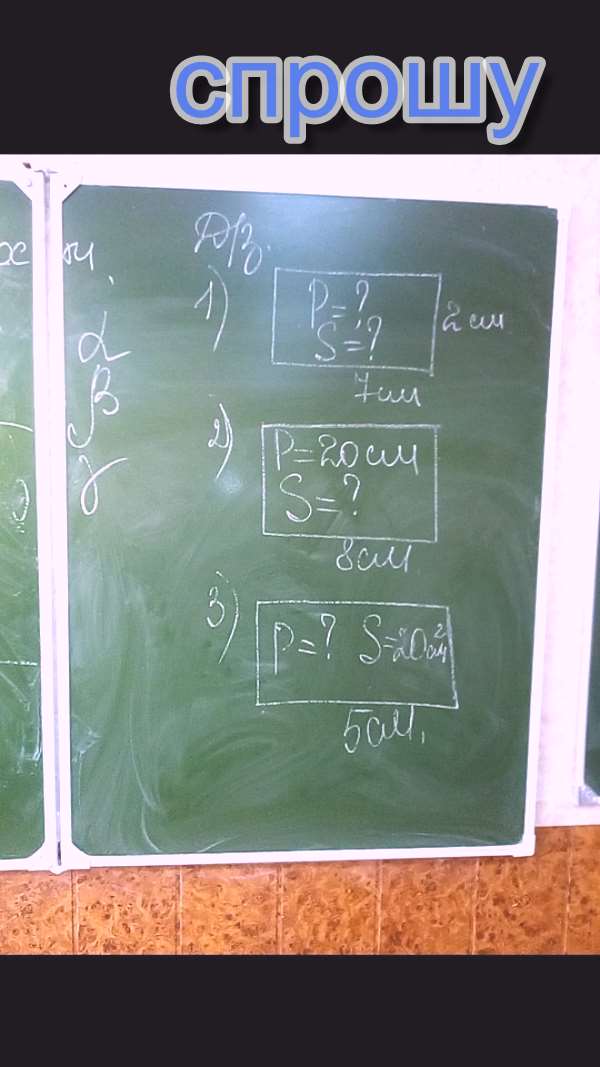 спрошу
Д/з.
1)
P=?
S=?
2 см
7 см
2)
P=20 см
S=?
8 см
3)
P=? S=20 см²
5 см.
α
β
γ